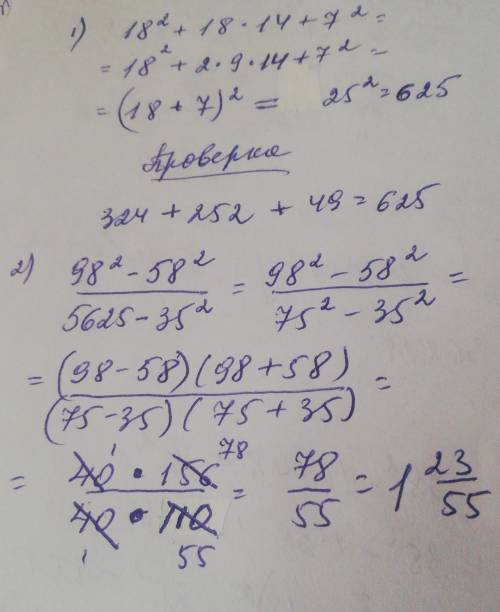 1) 18² + 18 · 14 + 7² =
= 18² + 2 · 9 · 14 + 7² =
= (18 + 7)² = 25² = 625
Проверка
324 + 252 + 49 = 625
2) 98² - 58² / 5625 - 35² = 98² - 58² / 75² - 35² =
= (98 - 58)(98 + 58) / (75 - 35)(75 + 35) =
= 40 1 · 156 78 / 40 1 · 110 55 = 78 / 55 = 1 23 / 55